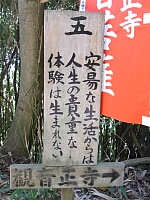 五
安易な生活からは
人生の貴重な
体験は生まれない
観音正寺→
正寺